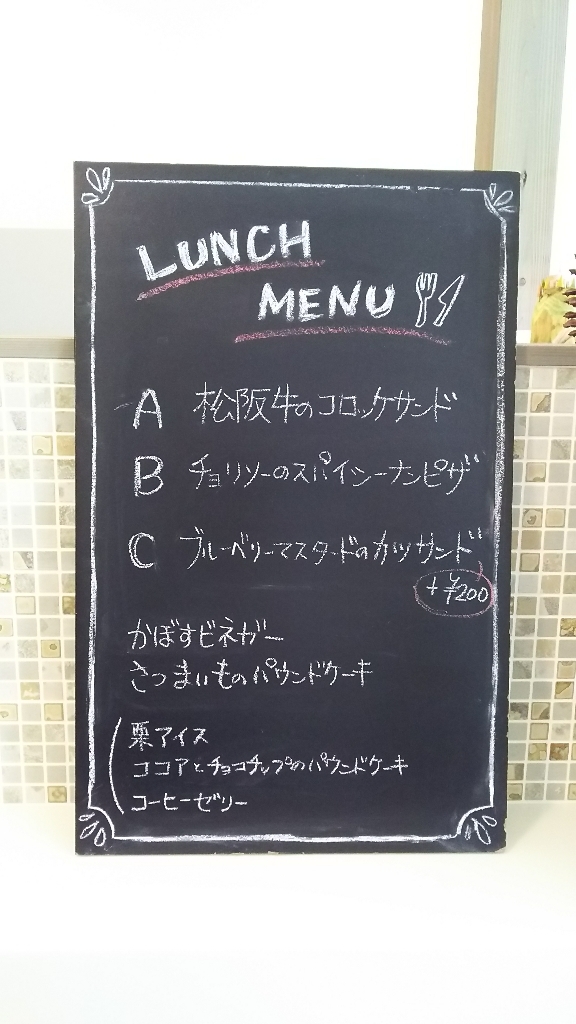 LUNCH
MENU
A 松阪牛のコロッケサンド
B チョリソーのスパイシーナンピザ
C ブルーベリーマスタードのカツサンド
+¥200
かぼすビネガー
さつまいものパウンドケーキ
栗アイス
ココアとチョコチップのパウンドケーキ
コーヒーゼリー